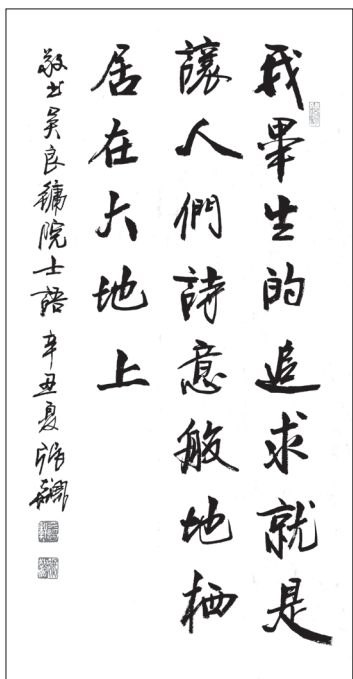 我畢生的追求就是
讓人們詩意般地栖
居在大地上
敬书吴良鏞院士語 辛丑夏 張